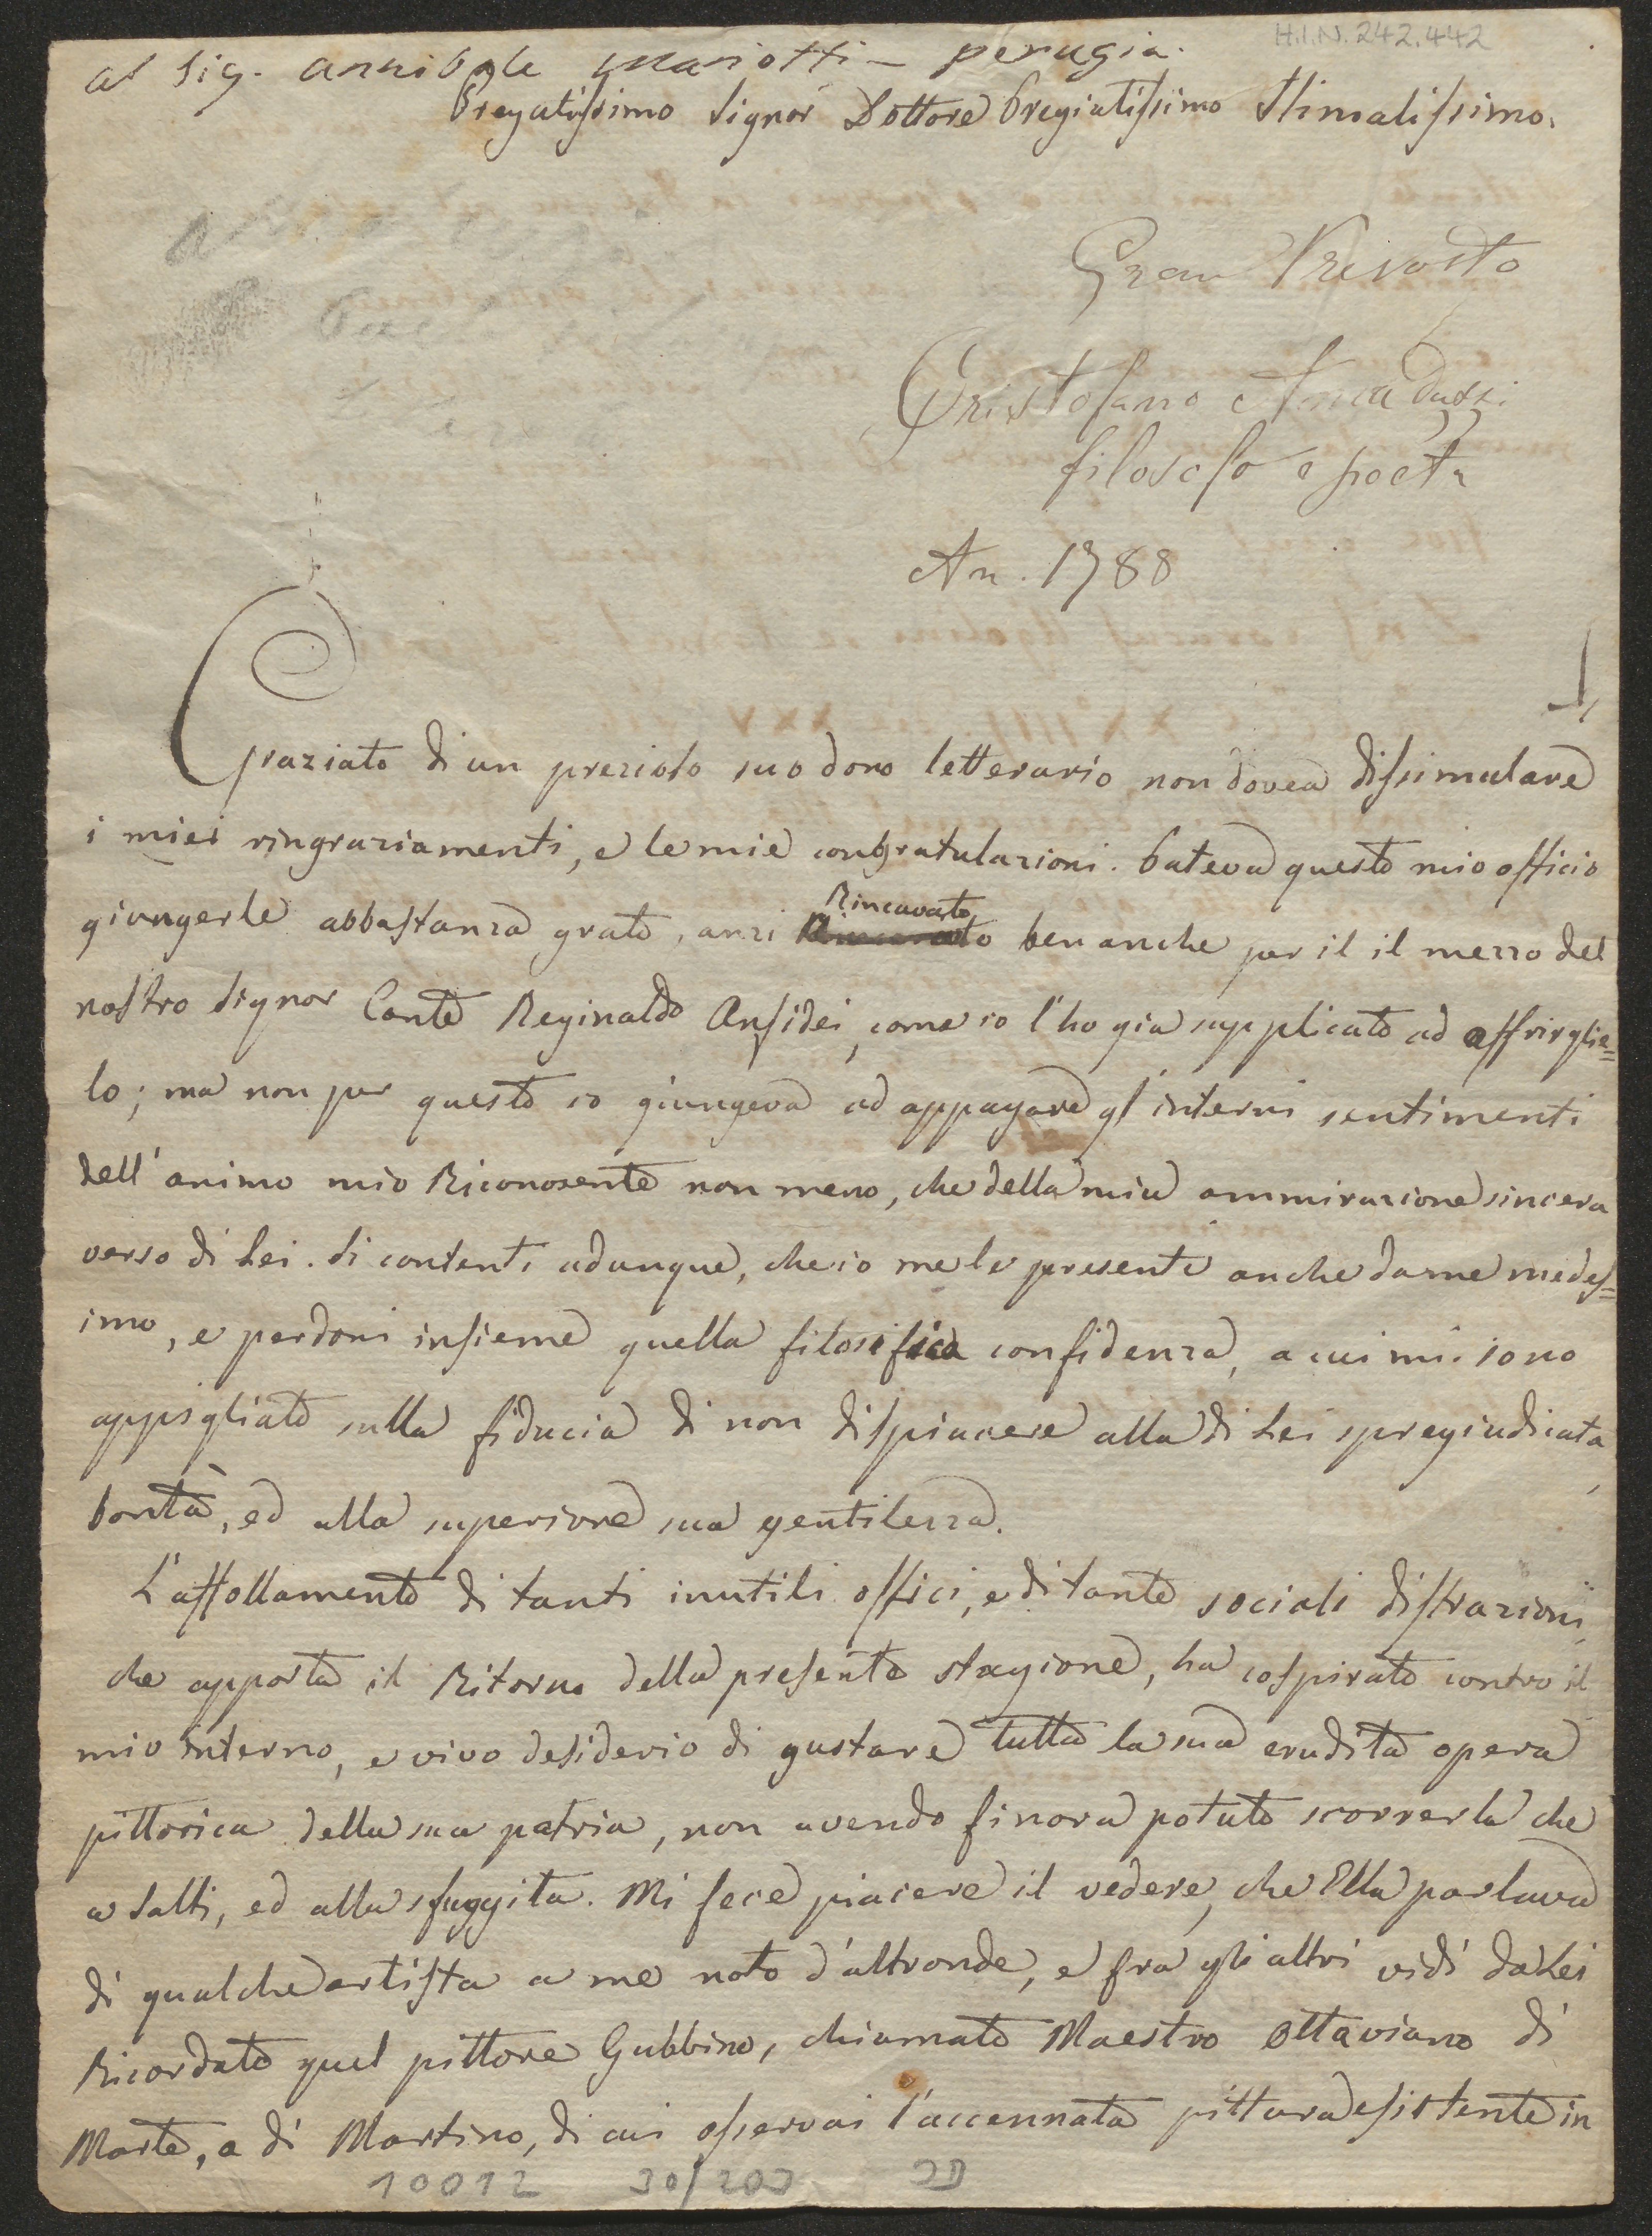 H.I.N. 242.442
al Sig. Annibale Mariotti - perugia.
Pregatissimo Signor Dottore Pregiatissimo Stimatissimo.
Gran Prevosto
Cristofano Amaduzzi
filosofo e poeta
An. 1788
Graziato di un prezioso suo dono letterario non dovea dissimulare
i miei ringraziamenti, e le mie congratulazioni. Poteva questo mio officio
giungerle abbastanza grato, anzi Rincavato ben anche per il il mezzo del
nostro Signor Conte Reginaldo Ansidei, come io l'ho gia supplicato ad offrirglie=
lo; ma non per questo io giungeva ad appagare gl'interni sentimenti
dell'animo mio Riconosente non meno, che della mia ammirazione sincera
verso di Lei. Si contenti adunque, che io me le presenti anche da me medes=
imo, e perdoni insieme quella filosifica confidenza, a cui mi sono
appigliato sulla fiducia di non dispiacere alla di Lei spregiudicata
bontà, ed alla superiore sua gentilezza.
L'affollamento di tanti inutili offici, e di tante sociali distrazioni
che apporta il Ritorno della presente stagione, ha cospirato contro il
mio interno, e vivo desiderio di gustare tutta la sua erudita opera
pittorica della sua patria, non avendo finora potuto scorrerla che
a salti, ed alla sfuggita. Mi fece piacere il vedere, che Ella parlava
di qualche artista a me noto d'altronde, e fra gli altri vidi da Lei
Ricordato quel pittore Gubbino, chiamato Maestro Ottaviano di
Marte, o di Martino, di cui osservai l'accennata pittura esistente in
10012 30/203